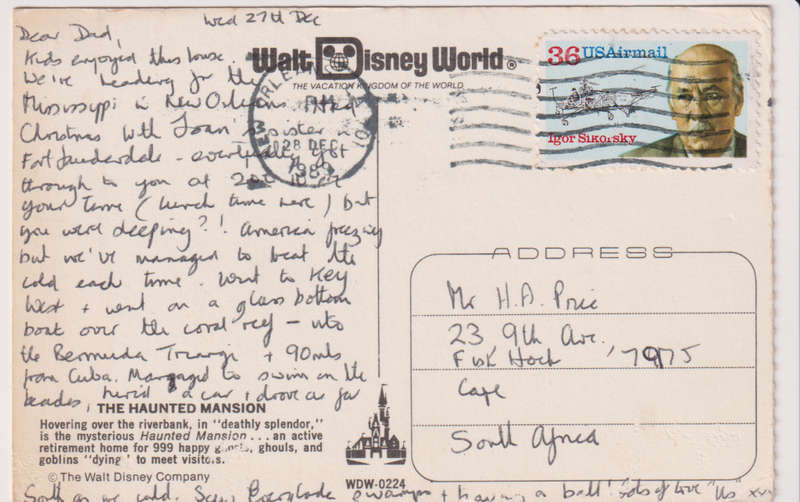 Wed 27th Dec
Dear Dad,
Kids enjoyed this house.
We're heading for the
Mississippi in New Orleans. Had
Christmas with Joan's sister in
Fort Lauderdale - eventually got
through to you at
your time (lunch time here) but
you were sleeping?! America freezing
but we've managed to beat the
cold each time. Went to Key
West + went on a glass bottom
boat over the coral reef - into
the Bermuda Triangle + 90mls
from Cuba. Managed to swim on the
beaches, hired a car + drove as far
South as we could. Seen Everglade swamps + having a ball! lots of love "Us" xx
Walt Disney World®
THE VACATION KINGDOM OF THE WORLD
NEW ORLEANS
28 DEC
1989
36 USAirmail
Igor Sikorsky
ADDRESS
Mr H.A. Price
23 9th Ave.
Fish Hoek 7975
Cape
South Africa
THE HAUNTED MANSION
Hovering over the riverbank, in "deathly splendor,"
is the mysterious Haunted Mansion . . . an active
retirement home for 999 happy ghosts, ghouls, and
goblins "dying" to meet visitors.
© The Walt Disney Company
WDW-0224